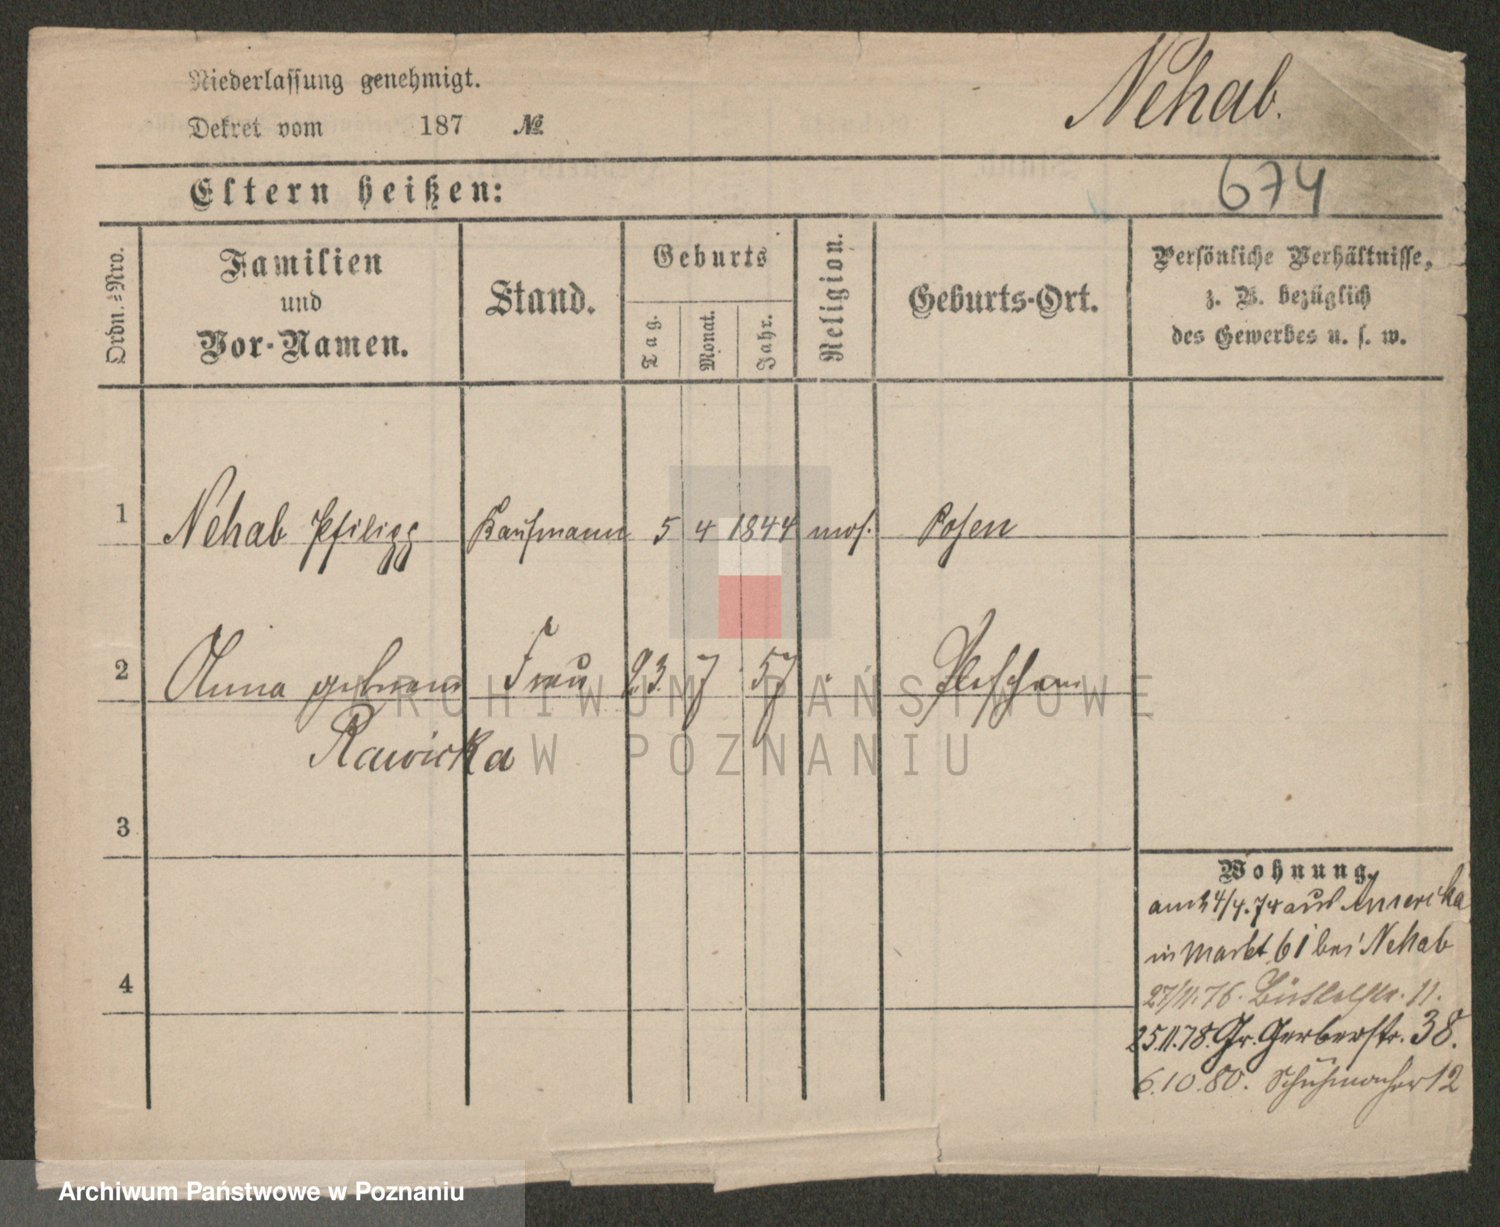 Niederlassung genehmigt.
Nehab.
Dekret vom 187 №
674
Eltern heißen:
Ordn.-Nro.
Familien
und
Vor-Namen.
Stand.
Geburts
Tag.
Monat.
Jahr.
Religion.
Geburts-Ort.
Persönliche Verhältnisse,
z. B. bezüglich
des Gewerbes u. s. w.
1 Nehab Kaufmann 5 4 1844 mos. Posen
2 Anna geborene Frau 23 7 57 Pleschen
Rawicka
ARCHIWUM PAŃSTWOWE
W POZNANIU
3
Wohnung.
am 24/4.74 aus Amerika
in Markt 61 bei Nehab
4
27/11.76. 11.
25.11.78. Gr. Gerberstr. 38.
6.10.80. Schuhmacher 12
Archiwum Państwowe w Poznaniu